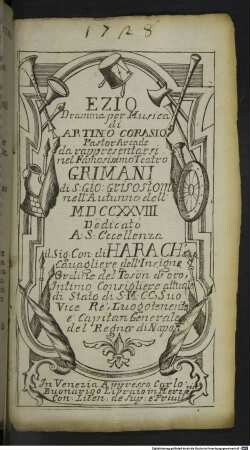 1728
EZIO
Dramma per Musica
di
ARTINO CORASIO
Pastor Arcade
da rappresentarsi
nel Famosissimo Teatro
GRIMANI
di S. Gio: Grisostomo
nell'Autunno dell'
MDCCXXVIII
Dedicato
A S. Eccellenza
il Sig. Con. di HARACH
Cavagliere dell'Insigne
Ordine del Toson d'oro,
Intimo Consigliere attuale
di Stato di S. M. CC. Suo
Vice Rè, Luogotenente
e Capitan Generale
del Regno di Napoli
In Venezia Appresso Carlo
Buonarigo Libraio in Merzeria
Con Licen. de Sup. e Privil.